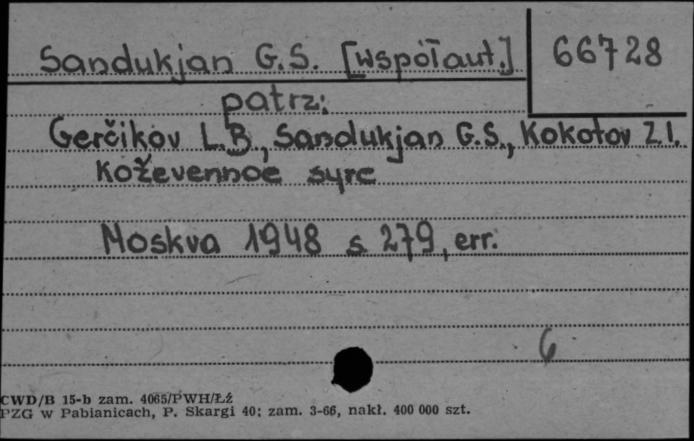 Sandukjan G.S. [współaut.] 66728
patrz:
Gerčikov L.B., Sandukjan G.S., Kokotov Z.I.
Koževennoe syrc
Moskva 1948 s 279, err.
6
CWD/B 15-b zam. 4065/PWH/Łź
PZG w Pabianicach, P. Skargi 40; zam. 3-66, nakł. 400 000 szt.